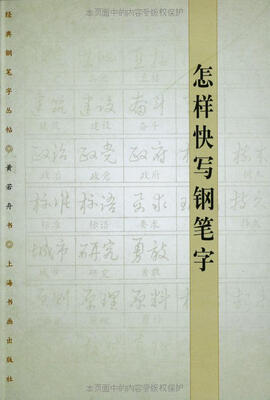 本页面中的内容受版权保护
怎样快写钢笔字
经典钢笔字丛帖◎黄若舟书◎上海书画出版社
建筑 建设 奋斗
建筑 建设 奋斗
政治 政党 政府
政治 政党 政府
标准 标语 要求
标准 标语 要求
城市 研究 勇敢
城市 研究 勇敢
原则 原理 原料
本页面中的内容受版权保护